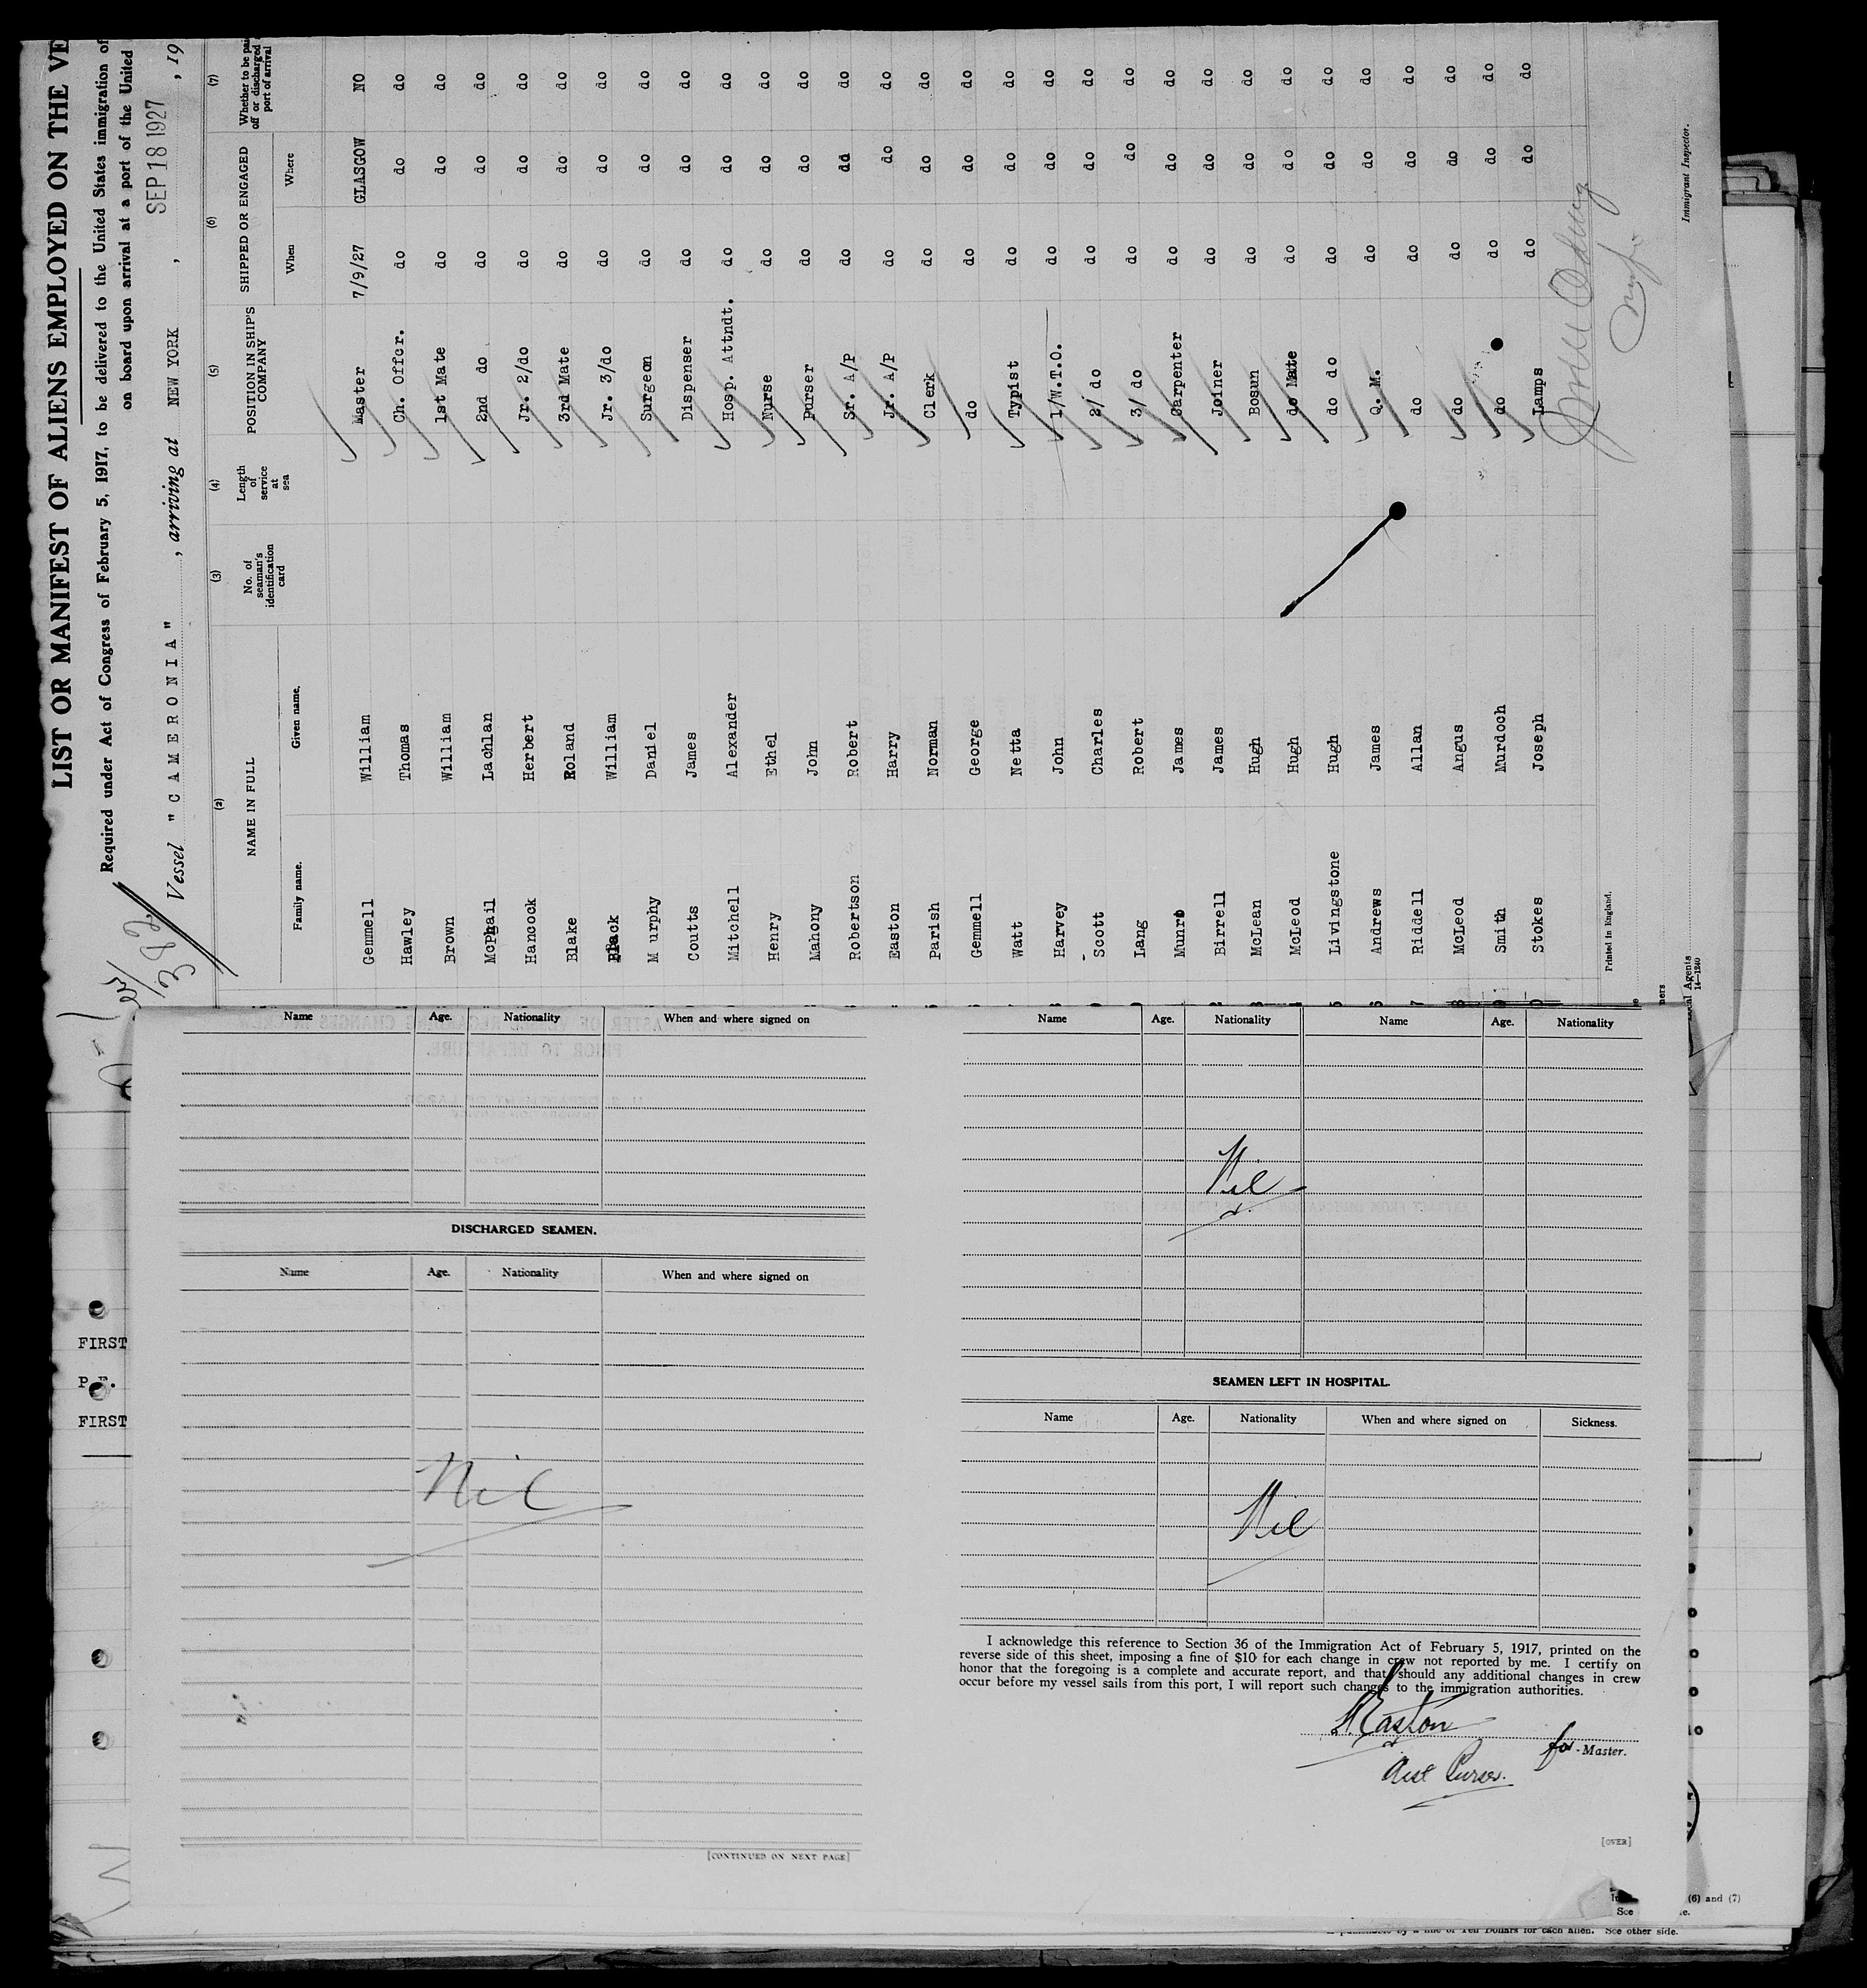 LIST OR MANIFEST OF ALIENS EMPLOYED ON THE VE
Required under Act of Congress of February 5, 1917, to be delivered to the United States immigration of
on board upon arrival at a port of the United
Vessel "CAMERONIA", arriving at NEW YORK, SEP 18 1927, 19
(2) (3) (4) (5) (6) (7)
NAME IN FULL No. of seaman's identification card Length of service at sea POSITION IN SHIP'S COMPANY SHIPPED OR ENGAGED Whether to be paid off or discharged port of arrival
Family name. Given name. When Where
Gemmell William Master 7/9/27 GLASGOW NO
Hawley Thomas Ch. Offcr. do do do
Brown William 1st Mate do do do
McPhail Lachlan 2nd do do do do
Hancock Herbert Jr. 2/do do do do
Blake Roland 3rd Mate do do do
Black William Jr. 3/do do do do
M urphy Daniel Surgeon do do do
Coutts James Dispenser do do do
Mitchell Alexander Hosp. Attndt. do do do
Henry Ethel Nurse do do do
Mahony John Purser do do do
Robertson Robert Sr. A/P do dd do
Easton Harry Jr. A/P do do do
Parish Norman Clerk do do do
Gemmell George do do do do
Watt Netta Typist do do do
Harvey John 1/W.T.O. do do do
Scott Charles 2/ do do do do
Lang Robert 3/ do do do do
Munro James Carpenter do do do
Birrell James Joiner do do do
McLean Hugh Bosun do do do
McLeod Hugh do Mate do do do
Livingstone Hugh do do do do do
Andrews James Q. M. do do do
Riddell Allan do do do do
McLeod Angus do do do do
Smith Murdoch do do do do
Stokes Joseph Lamps do do do
Immigrant Inspector.
Printed in England.
14—1240
Name Age. Nationality When and where signed on
DISCHARGED SEAMEN.
Name Age. Nationality When and where signed on
Nil
[CONTINUED ON NEXT PAGE]
Name Age. Nationality Name Age. Nationality
Nil
SEAMEN LEFT IN HOSPITAL.
Name Age. Nationality When and where signed on Sickness.
Nil
I acknowledge this reference to Section 36 of the Immigration Act of February 5, 1917, printed on the
reverse side of this sheet, imposing a fine of $10 for each change in crew not reported by me. I certify on
honor that the foregoing is a complete and accurate report, and that should any additional changes in crew
occur before my vessel sails from this port, I will report such changes to the immigration authorities.
HEaston
for Master.
Asst Purser.
[OVER]
FIRST
FIRST
(6) and (7)
See
for each alien. See other side.